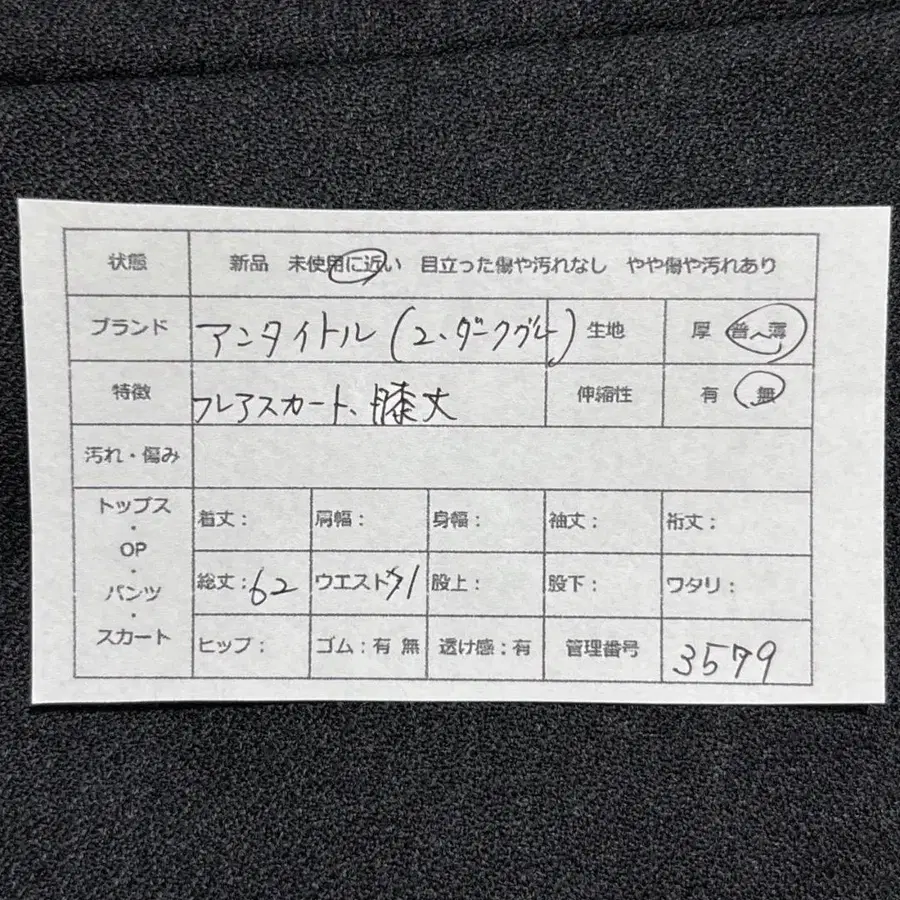 状態 新品 未使用に近い 目立った傷や汚れなし やや傷や汚れあり
ブランド アンタイトル(2、ダークグレー) 生地 厚 普 薄
特徴 フレアスカート、膝丈 伸縮性 有 無
汚れ・傷み
トップス・OP・パンツ・スカート
着丈: 肩幅: 身幅: 袖丈: 裄丈:
総丈:62 ウエスト71 股上: 股下: ワタリ:
ヒップ: ゴム:有 無 透け感:有 管理番号 3579